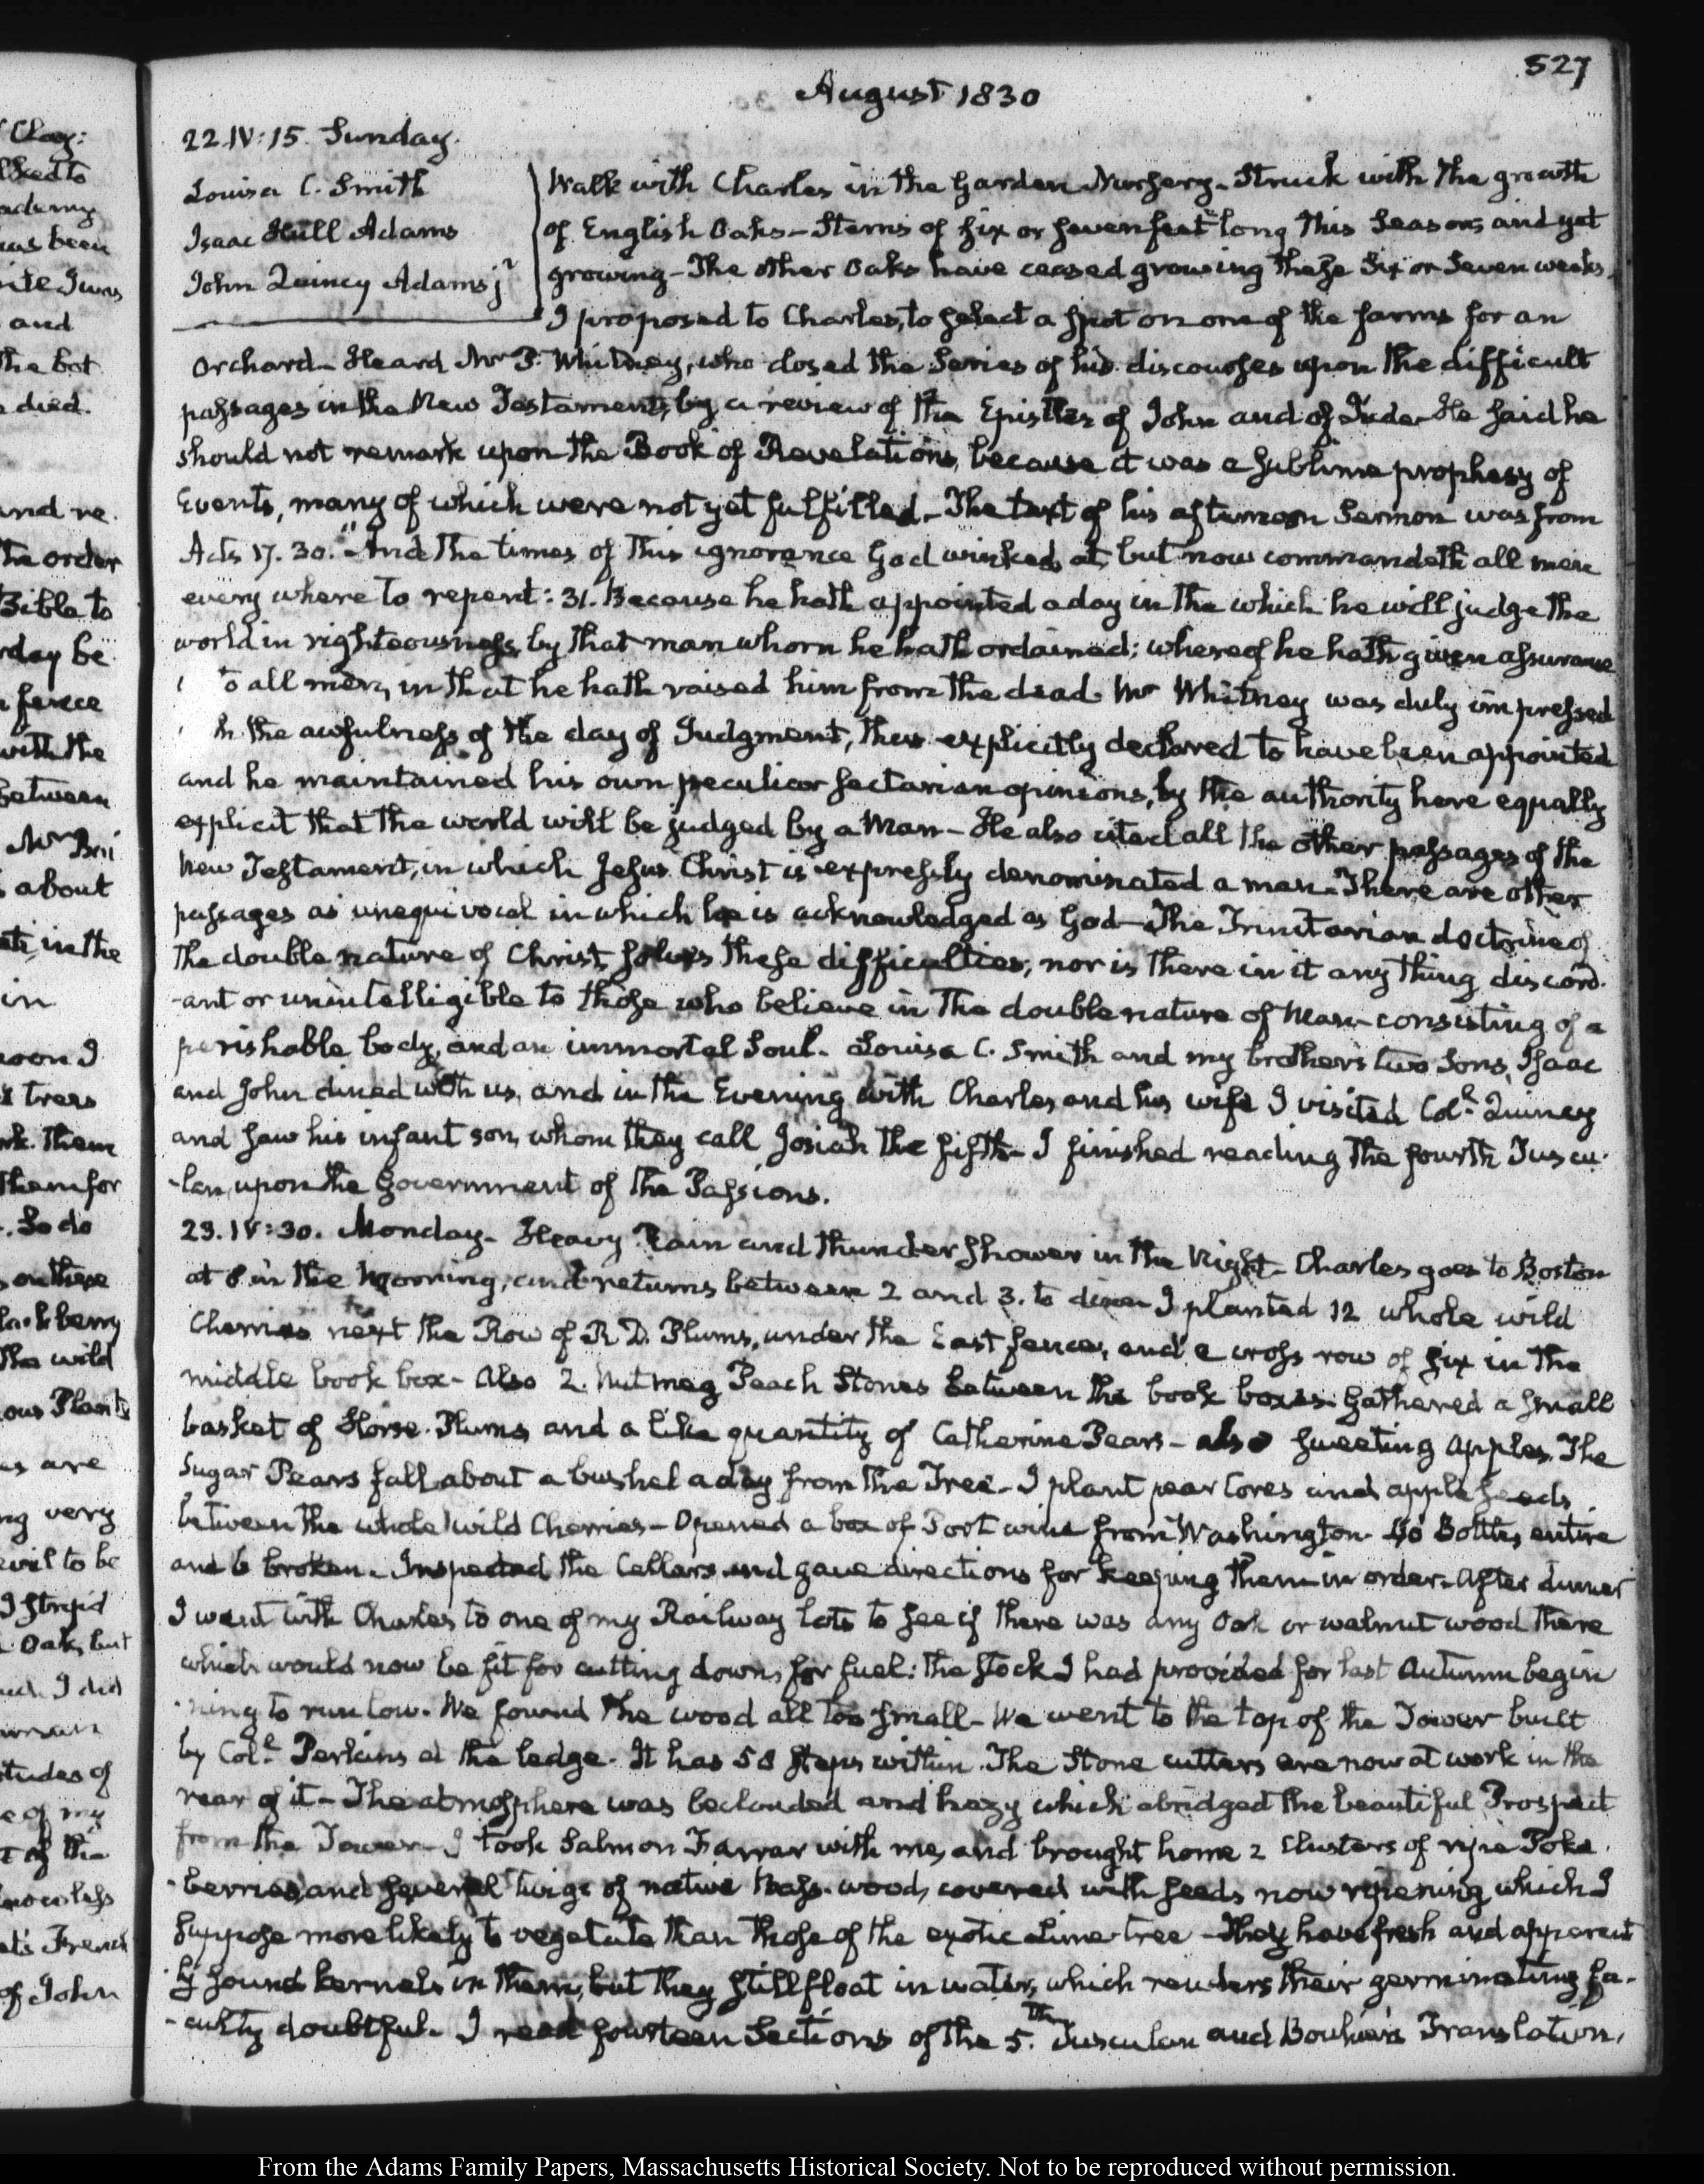 527
August 1830
22. IV:15. Sunday.
Louisa C. Smith
Isaac Hull Adams
John Quincy Adams jr
Walk with Charles in the Garden Nursery - Struck with the growth
of English Oaks - Stems of six or seven feet long this Season, and yet
growing - The other Oaks have ceased growing these Six or Seven weeks.
I proposed to Charles, to select a spot on one of the farms for an
Orchard - Heard Mr P. Whitney, who closed the Series of his discourses upon the difficult
passages in the New Testament, by a review of the Epistles of John and of Jude - He said he
should not remark upon the Book of Revelations, because it was a sublime prophesy of
Events, many of which were not yet fulfilled. - The text of his afternoon Sermon was from
Acts 17. 30. "And the times of this ignorance God winked at, but now commandeth all men
every where to repent: 31. Because he hath appointed a day in the which he will judge the
world in righteousness, by that man whom he hath ordained; whereof he hath given assurance
to all men, in that he hath raised him from the dead. Mr Whitney was duly impressed
the awfulness of the day of Judgment, thus explicitly declared to have been appointed
and he maintained his own peculiar sectarian opinions, by the authority here equally
explicit that the world will be judged by a Man - He also cited all the other passages of the
New Testament, in which Jesus Christ is expressly denominated a man - There are other
passages as unequivocal in which he is acknowledged as God - The Trinitarian doctrine of
the double nature of Christ, solves these difficulties, nor is there in it any thing discord-
-ant or unintelligible to those who believe in the double nature of Man - consisting of a
perishable body, and an immortal Soul. Louisa C. Smith and my brother's two Sons, Isaac
and John dined with us, and in the Evening with Charles and his wife I visited Col. Quincy
and saw his infant son, whom they call Josiah the fifth - I finished reading the fourth Tuscu-
-lan, upon the Government of the Passions.
23. IV:30. Monday - Heavy Rain and thunder shower in the Night - Charles goes to Boston
at 8 in the Morning, and returns between 2 and 3. to dine - I planted 12 whole wild
Cherries next the Row of R. D. Plums, under the East fence, and a cross row of six in the
middle book box - Also 2. Nutmeg Peach Stones between the book boxes. Gathered a small
basket of Horse Plums and a like quantity of Catherine Pears - also Sweeting Apples. The
Sugar Pears fall about a bushel a day from the Tree - I plant pear Cores and apple seeds
between the whole wild Cherries - Opened a box of Port wine from Washington. 40 Bottles, entire
and 6 broken. Inspected the Cellars and gave directions for keeping them in order. After dinner
I went with Charles to one of my Railway lots to see if there was any Oak or walnut wood there
which would now be fit for cutting down, for fuel: the stock I had provided for last Autumn begin
-ning to run low. We found the wood all too small - We went to the top of the Tower built
by Col. Perkins at the ledge. It has 58 Steps within. The Stone cutters are now at work in the
rear of it - The atmosphere was beclouded and hazy which abridged the beautiful Prospect
from the Tower - I took Salmon Farrar with me, and brought home 2 Clusters of ripe Poke
-berries, and several twigs of native Bass-wood, covered with seeds now ripening which I
suppose more likely to vegetate than those of the exotic Lime-tree - They have fresh and apparent
ly sound kernels in them, but they still float in water, which renders their germinating fa-
-culty doubtful. I read fourteen Sections of the 5.th Tusculan and Bouhier's Translation.
From the Adams Family Papers, Massachusetts Historical Society. Not to be reproduced without permission.